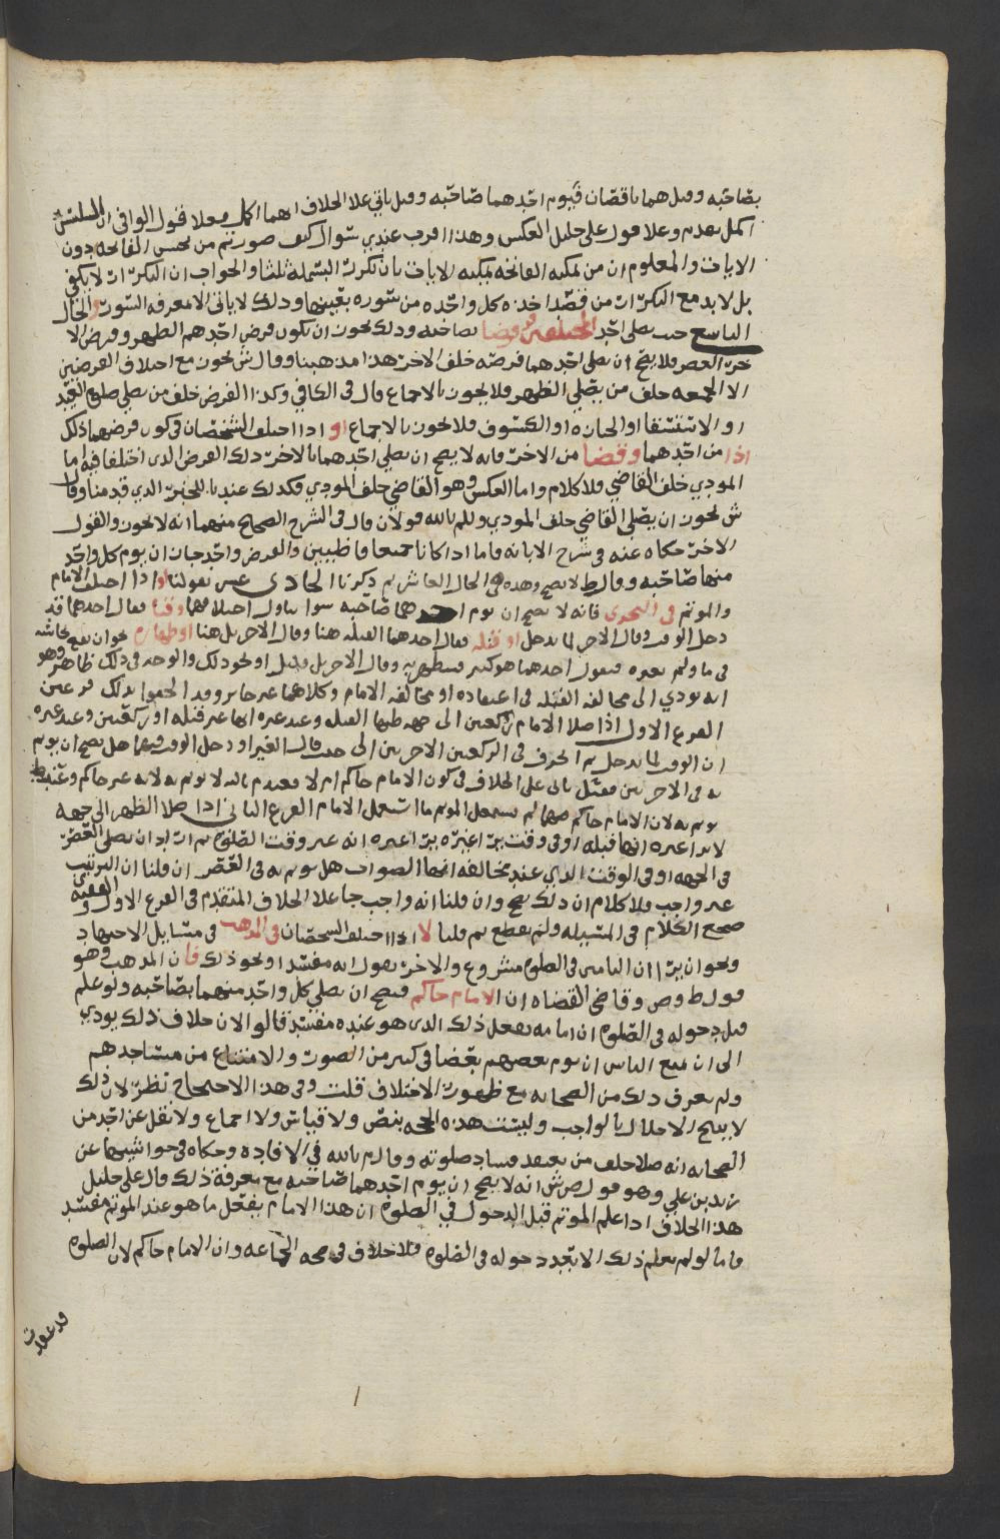 بصاحبه وقيل هما ناقصان فيوم احدهما صاحبه وقيل ياتي علا الخلاف ايهما اكمل فعلا قول الوافي ان
اكمل يقدم وعلا قول علي خليل العكس وهذا اقرب عندي سوال كيف صورتم من يحسن الفاتحه دون
الايات والمعلوم ان من يمكنه الفاتحه يمكنه الايات بان يكرر البسملة ثلثا والجواب ان التكرار لا يكفي
بل لا بد مع التكرار من قصد اخذه كل واحده من سوره بعينها وذلك لا ياتي الا لمعرفه السور والحال
التاسع حيث يصلي احد المختلفين فرضا بصاحبه وذلك نحو ان يكون فرض احدهم الظهر وفرض الا
خر العصر فلا يصح ان يصلي احدهما فرضه خلف الاخر هذا مذهبنا وقال ش يجوز مع اختلاف الفرضين
الا الجمعه خلف من يصلي الظهر فلا يجوز بالاجماع قال في الكافي وكذا الفرض خلف من يصلي صلوة العيد
او الاستسقا او الجنازه او الكسوف فلا يجوز بالاجماع او اذا اختلف الشخصان في كون فرضهما ذلك
اذا من احدهما وقضا من الاخر فانه لا يصح ان يصلي احدهما بالاخر ذلك الفرض الذي اختلفا فيه اما
المودي خلف القاضي فلا كلام واما العكس وهو القاضي خلف المودي فكذلك عندنا للخبر الذي قدمنا وقال
ش يجوز ان يصلي القاضي خلف المودي وللم بالله قولان قال في الشرح الصحيح منهما انه لا يجوز والقول
الاخر حكاه عنه في شرح الابانه فاما اذا كانا جميعا قاضيين والفرض واحد جاز ان يوم كل واحد
منهما صاحبه وقال ط لا يصح وهذه هي الحال العاشر ثم ذكرنا الحادي عشر بقولنا او اذا اختلف الامام
والموتم في التحري فانه لا يصح ان يوم احدهما صاحبه سوا تناول اختلافهما وقتا فقال احدهما قد
دخل الوقت وقال الاخر لما يدخل او قبله فقال احدهما القبله هنا وقال الاخر بل هنا او طهاره نحو ان تقع نجاسه
في ما ولم يغيره فيقول احدهما هو كثير فيتطهر به وقال الاخر بل قليل او نحو ذلك والوجه في ذلك ظاهر وهو
انه يودي الى مخالفه القبله في اعتقاده او مخالفه الامام وكلاهما غير جايز وقد الحقوا بذلك فرعين
الفرع الاول اذا صلا الامام ركعتين الى جهه ظنها القبله وعند غيره انها غير قبله او ركعتين وعند غيره
ان الوقت لما يدخل ثم انحرف في الركعتين الاخرتين الى حيث قال الغير او دخل الوقت فيهما هل يصح ان يوتم
به في الاخرتين فقيل ياتي على الخلاف في كون الامام حاكم ام لا فعند م بالله لا يوتم به لانه غير حاكم وعند ط
يوتم به لان الامام حاكم مهما لم يستعمل الموتم ما استعمل الامام الفرع الثاني اذا صلا الظهر الى جهه
لا يرا غيره انها قبله او في وقت يرا غيره انه غير وقت الصلوة ثم اراد ان يصلي العصر
في الجهه او في الوقت الذي عند مخالفه انها الصواب هل يوتم به في العصر ان قلنا ان الترتيب
غير واجب فلا كلام ان ذلك يصح وان قلنا انه واجب جا علا الخلاف المتقدم في الفرع الاول والفقيه ى
صحح الكلام في المسيله ولم يقطع ثم قلنا لا اذا اختلف الشخصان في المذهب في مسايل الاجتهاد
ونحو ان يرا ان التامين في الصلوة مشروع والاخر يقول انه مفسد او نحو ذلك فان المذهب وهو
قول ط وص وقاضي القضاه ان الامام حاكم فيصح ان يصلي كل واحد منهما بصاحبه ولو علم
قبل دخوله في الصلوة ان امامه يفعل ذلك الذي هو عنده مفسد قالوا لان خلاف ذلك يودي
الى ان يمنع الناس ان يوم بعضهم بعضا في كثير من الصور والامتناع من مساجدهم
ولم يعرف ذلك من الصحابه مع ظهور الاختلاف قلت وفي هذا الاحتجاج نظر لان ذلك
لا يبيح الاخلال بالواجب وليست هذه الحجه بنص ولا قياس ولا اجماع ولا نقل عن احد من
الصحابه انه صلا خلف من يعتقد فساد صلوته وقال م بالله في الافاده وحكاه في حواشيها عن
زيد بن علي وهو قول ص ش انه لا يصح ان يوم احدهما صاحبه مع معرفة ذلك قال علي خليل
هذا الخلاف اذا علم الموتم قبل الدخول في الصلوة ان هذا الامام يفعل ما هو عند الموتم مفسد
فاما لو لم يعلم ذلك الا بعد دخوله في الصلوة فلا خلاف في صحه الجماعه وان الامام حاكم لان الصلوة
قد عقدت